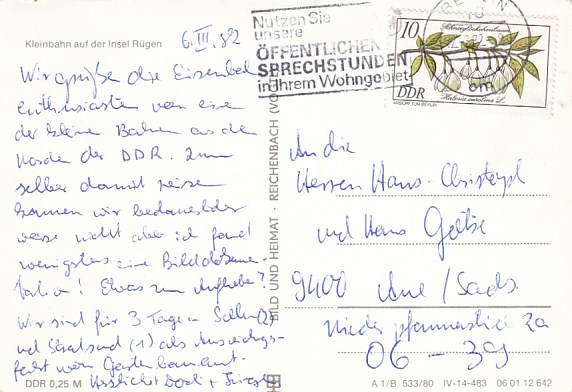 Kleinbahn auf der Insel Rügen
6. III. 82
Wir grüßen die Eisenbahn
enthusiasten von einer
der kleinen Bahnen aus dem
Norden der DDR. Zum
selber damit reisen
kommen wir bedauerlicher
weise nicht aber ich fand
wenigstens eine Bilddokumen
tation! Etwas zum Aufheben?
Wir sind für 3 Tage in
und Stralsund (1) als Auszeichnungs-
fahrt vom
Herzlichst
DDR 0,25 M
BILD UND HEIMAT · REICHENBACH (VOGTL)
Nutzen Sie
unsere
ÖFFENTLICHEN
SPRECHSTUNDEN
in Ihrem Wohngebiet
10
DDR
An die
Herren Hans-Christoph
und Hans
9400 Aue / Sachs.
Niederpfannenstiel 2a
06 – 39
A 1/B 533/80 IV-14-483 06 01 12 642